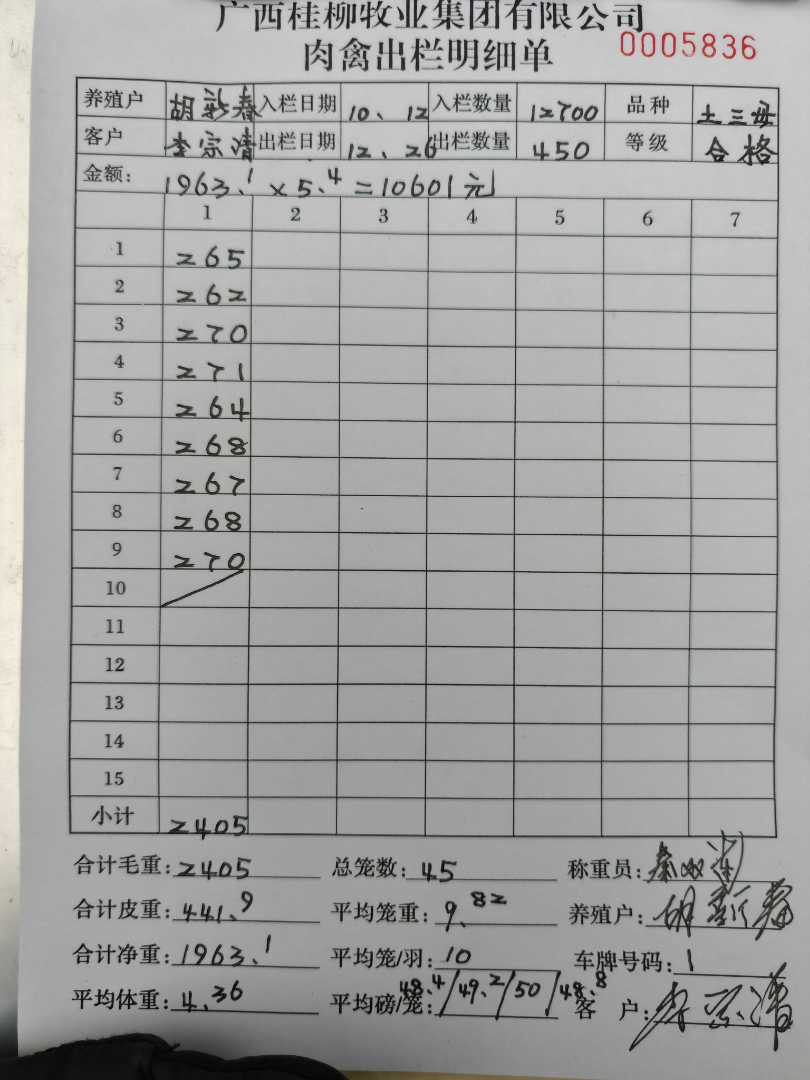 广西桂柳牧业集团有限公司
肉禽出栏明细单 0005836
养殖户 胡新春 入栏日期 10、12 入栏数量 12700 品种 土三母
客户 李宗清 出栏日期 12、26 出栏数量 450 等级 合格
金额: 1963.1 × 5.4 = 10601元
1 2 3 4 5 6 7
1 265
2 262
3 270
4 271
5 264
6 268
7 267
8 268
9 270
10
11
12
13
14
15
小计 2405
合计毛重: 2405 总笼数: 45 称重员:
合计皮重: 441.9 平均笼重: 9.82 养殖户: 胡新春
合计净重: 1963.1 平均笼/羽: 10 车牌号码: 1
平均体重: 4.36 平均磅/笼: 48.4/49.2/50/48.8 客户: 李宗清